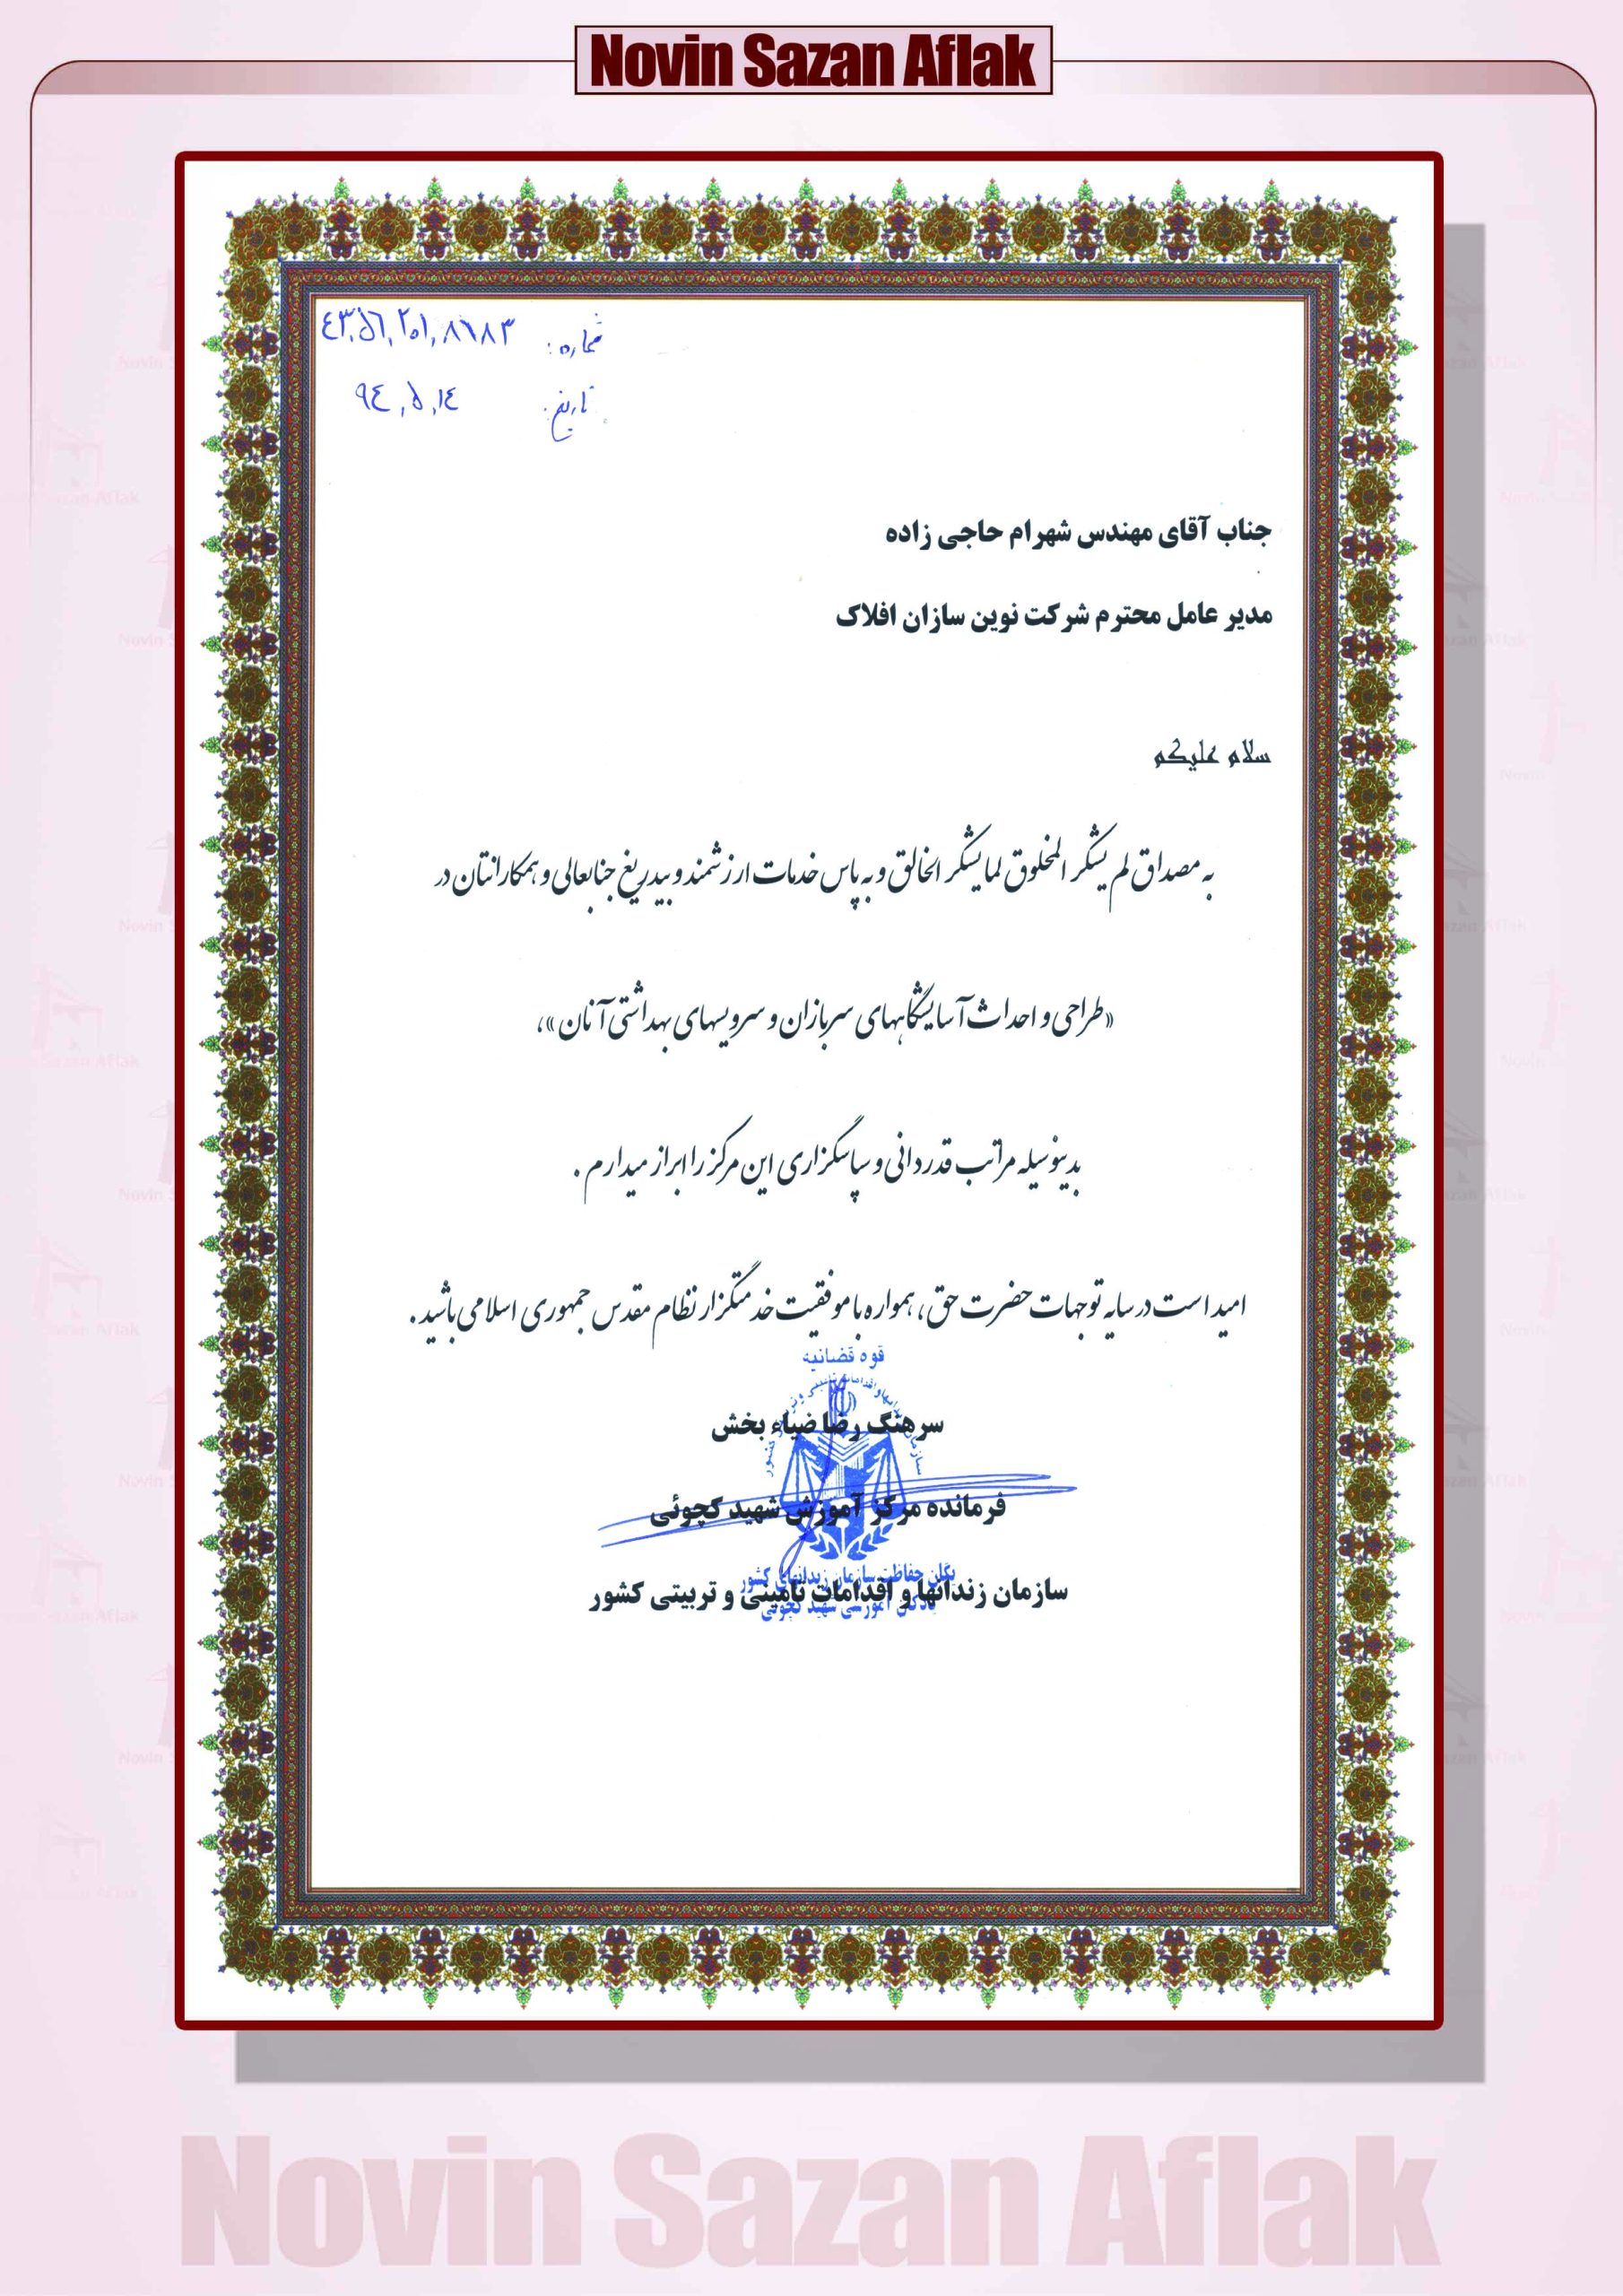 Novin Sazan Aflak
شماره:
تاریخ: ٩٤,٥,١٤
جناب آقای مهندس شهرام حاجی زاده
مدیر عامل محترم شرکت نوین سازان افلاک
سلام علیکم
به مصداق لم یشکر المخلوق لما یشکر الخالق و به پاس خدمات ارزشمند و بیدریغ جنابعالی و همکارانتان در
«طراحی و احداث آسایشگاههای سربازان و سرویسهای بهداشتی آنان»،
بدینوسیله مراتب قدردانی و سپاسگزاری این مرکز را ابراز میدارم .
امید است در سایه توجهات حضرت حق، همواره با موفقیت خدمتگزار نظام مقدس جمهوری اسلامی باشید .
قوه قضائیه
سرهنگ رضا ضیاء بخش
فرمانده مرکز آموزش شهید کچوئی
یگان حفاظت سازمان زندانهای کشور
سازمان زندانها و اقدامات تامینی و تربیتی کشور
Novin Sazan Aflak